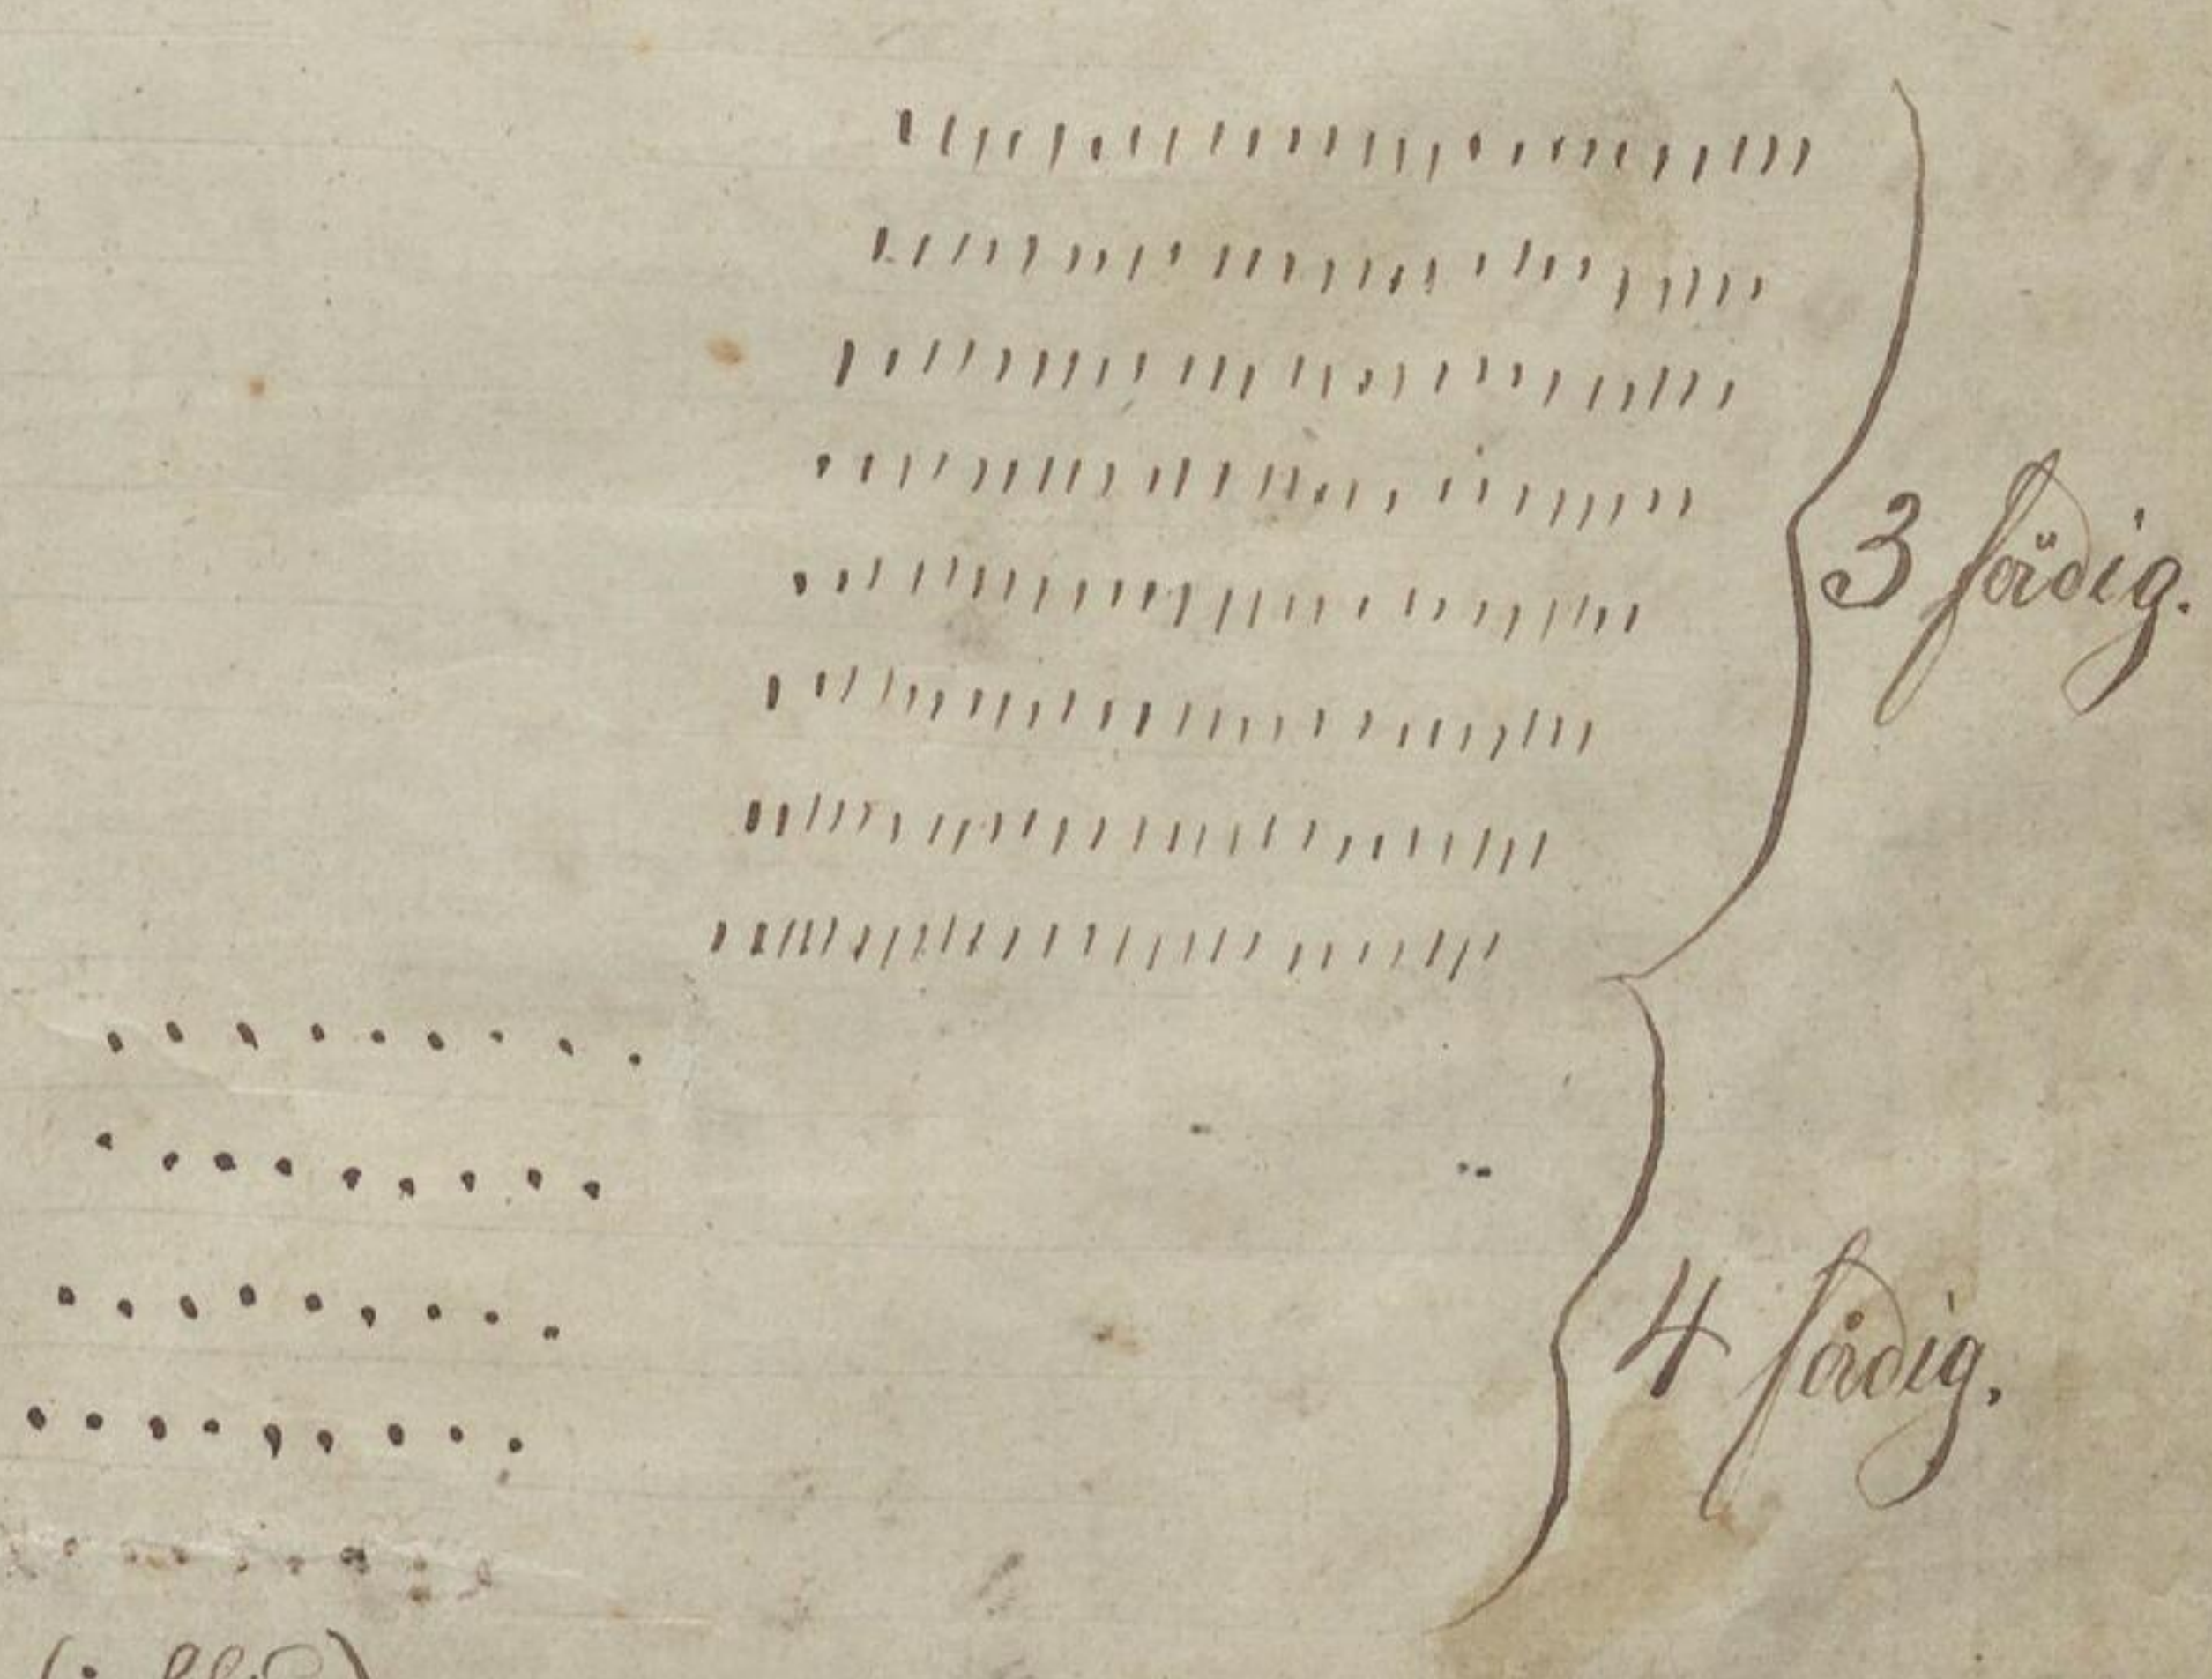 3 fädig.
4 fädig.